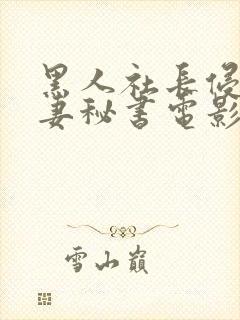 黑人社長侵
妻秘書電影
雪山巔